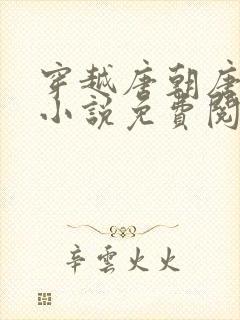 穿越唐朝唐
小說免費閱
辛雲火火